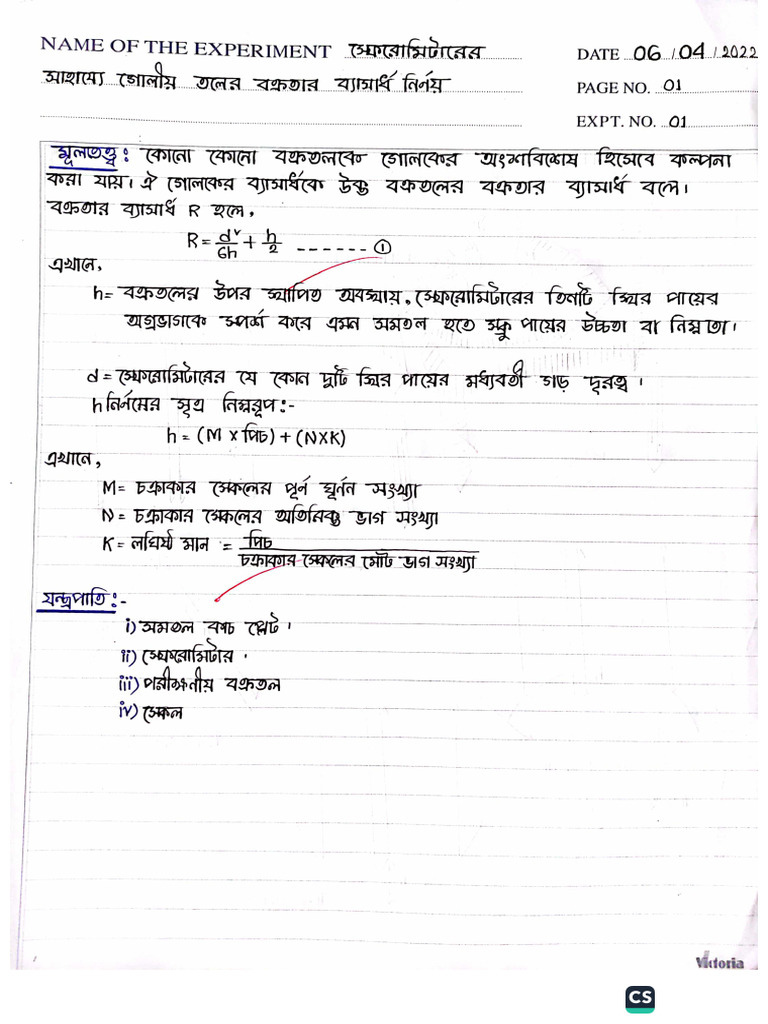 NAME OF THE EXPERIMENT স্ফেরোমিটারের
DATE 06/04/2022
সাহায্যে গোলীয় তলের বক্রতার ব্যাসার্ধ নির্নয়
PAGE NO. 01
EXPT. NO. 01
মূলতত্ত্ব: কোনো কোনো বক্রতলকে গোলকের অংশবিশেষ হিসেবে কল্পনা
করা যায়। ঐ গোলকের ব্যাসার্ধকে উক্ত বক্রতলের বক্রতার ব্যাসার্ধ বলে।
বক্রতার ব্যাসার্ধ R হলে,
R = d²/6h + h/2 ------ ①
এখানে,
h = বক্রতলের উপর স্থাপিত অবস্থায়, স্ফেরোমিটারের তিনটি স্থির পায়ের
অগ্রভাগকে স্পর্শ করে এমন সমতল হতে স্ক্রু পায়ের উচ্চতা বা নিম্নতা।
d = স্ফেরোমিটারের যে কোন দুটি স্থির পায়ের মধ্যবর্তী গড় দূরত্ব।
h নির্নয়ের সূত্র নিম্নরূপ:-
h = (M x পিচ) + (NXK)
এখানে,
M = চক্রাকার স্কেলের পূর্ন ঘূর্নন সংখ্যা
N = চক্রাকার স্কেলের অতিরিক্ত ভাগ সংখ্যা
K = লঘিষ্ঠ মান = পিচ
চক্রাকার স্কেলের মোট ভাগ সংখ্যা
যন্ত্রপাতি:-
i) সমতল কাচ প্লেট।
ii) স্ফেরোমিটার।
iii) পরীক্ষনীয় বক্রতল
iv) স্কেল
Victoria
CS